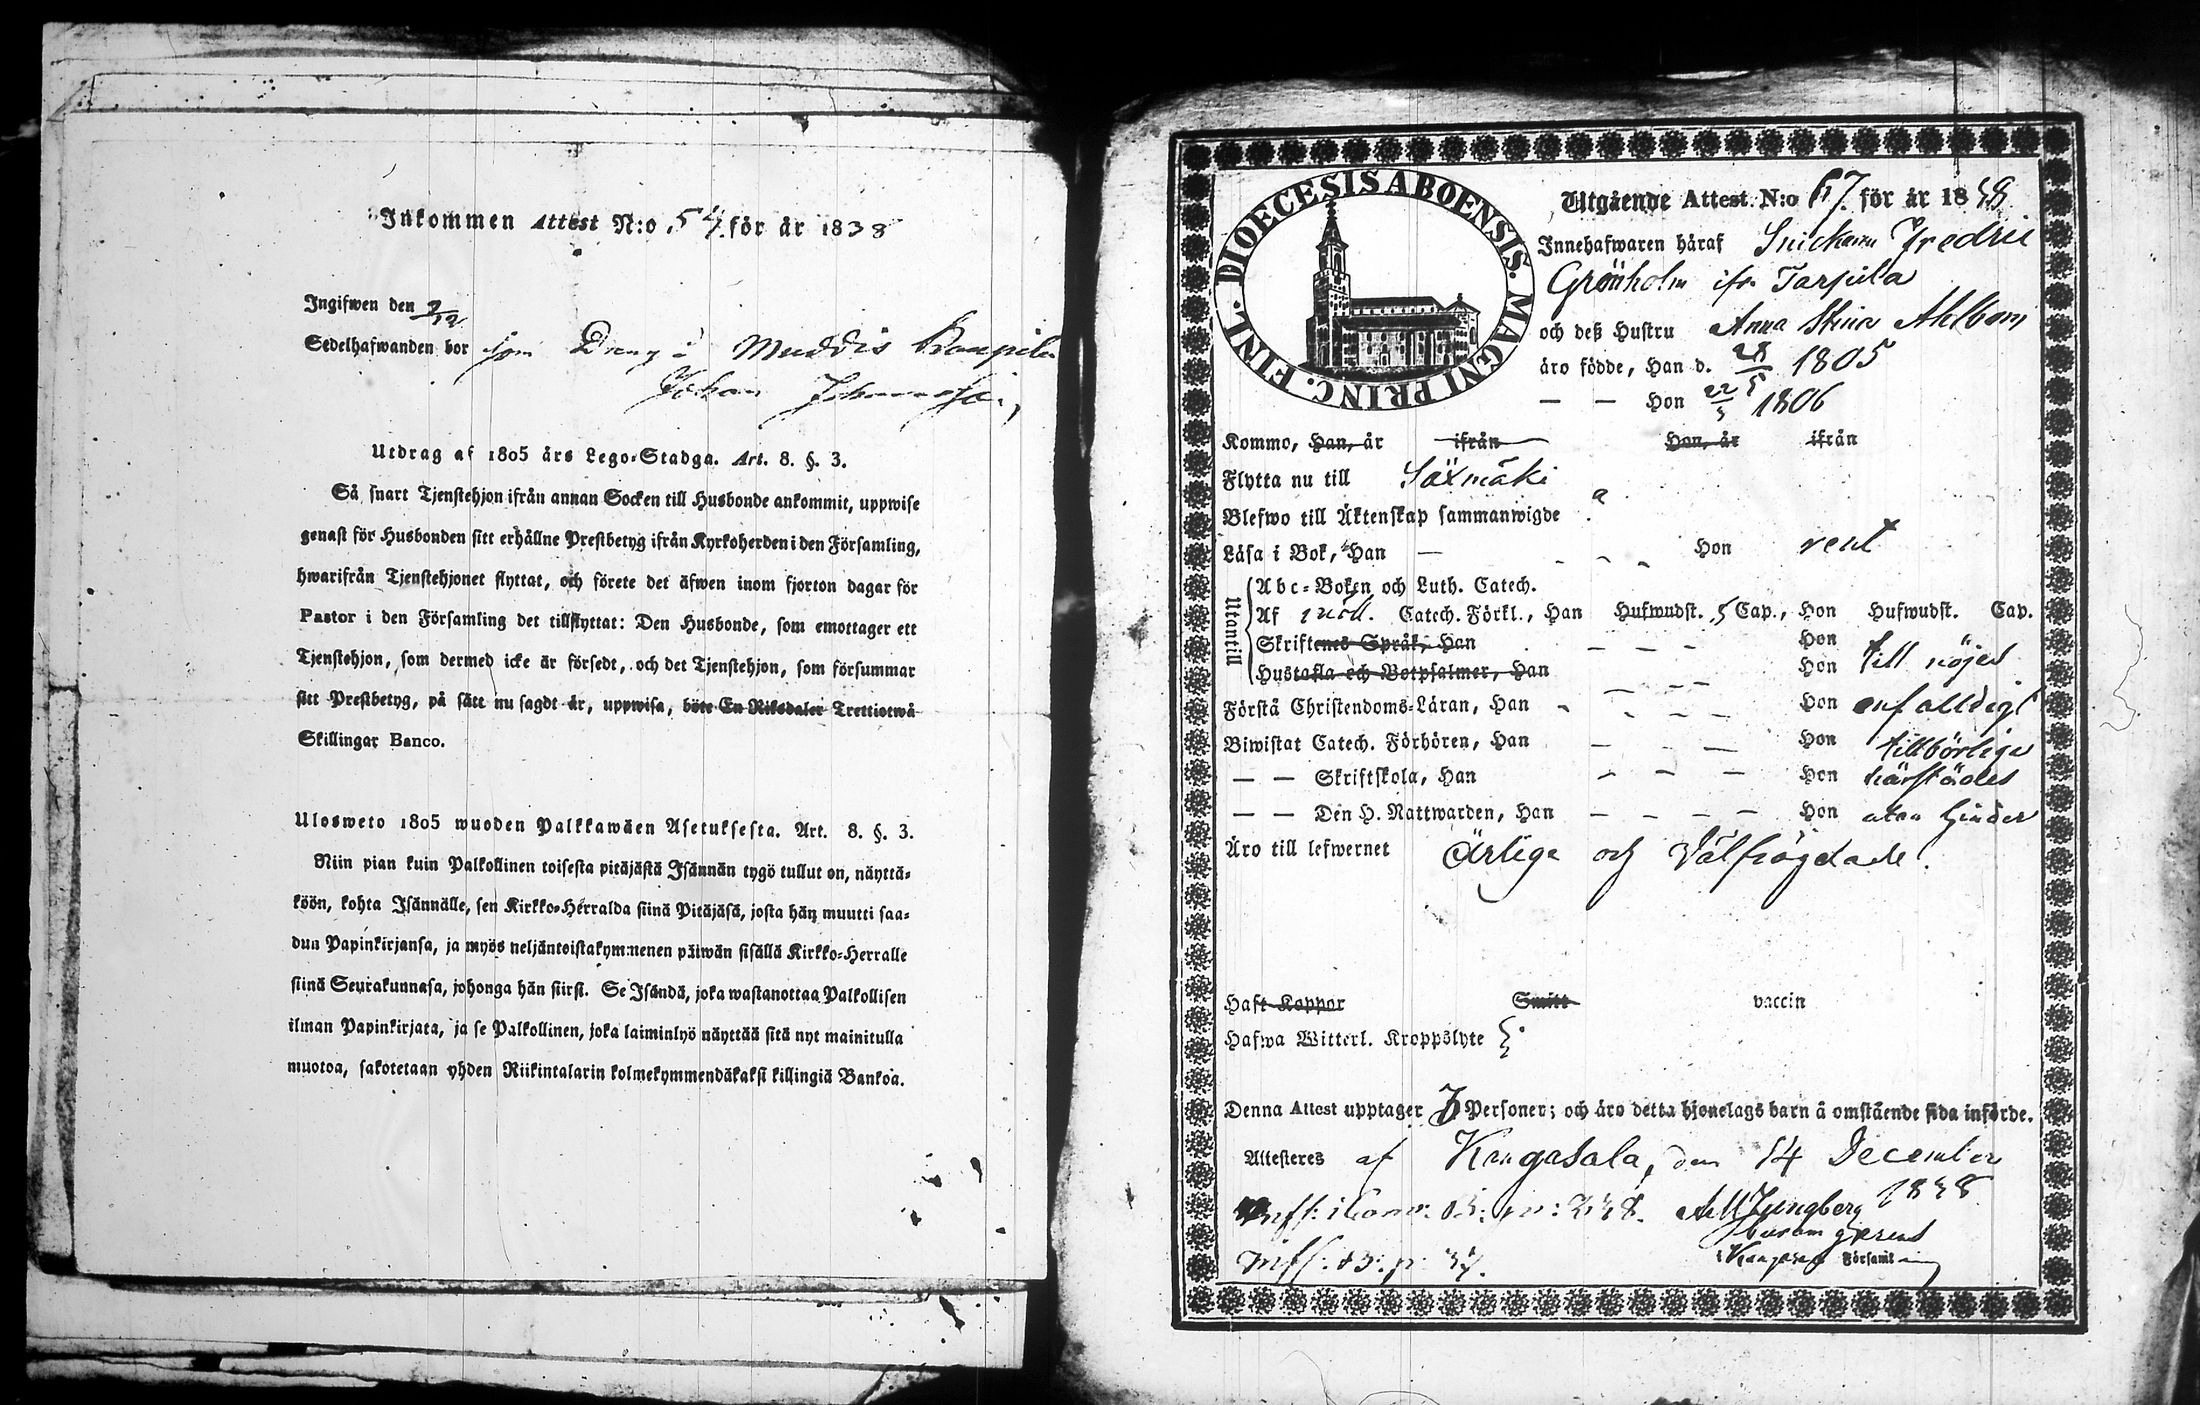 Inkommen Attest N:o 54 för år 1838
Ingifwen den 7/12
Sedelhafwanden bor som Dräng i Muddis Kaupila
Johan Johansson,
Utdrag af 1805 års Lego-Stadga. Art. 8. §. 3.
Så snart Tjenstehjon ifrån annan Socken till Husbonde ankommit, uppwise
genast för Husbonden sitt erhållne Prestbetyg ifrån Kyrkoherden i den Församling,
hwarifrån Tjenstehjonet flyttat, och förete det äfwen inom fjorton dagar för
Pastor i den Församling det tillflyttat: Den Husbonde, som emottager ett
Tjenstehjon, som dermed icke är försedt, och det Tjenstehjon, som försummar
sitt Prestbetyg, på sätt nu sagdt är, uppwisa, böte En Riksdaler Trettiotwå
Skillingar Banco.
Ulosweto 1805 wuoden Palkkawäen Asetuksesta. Art. 8. §. 3.
Niin pian kuin Palkollinen toisesta pitäjästä Isännän tygö tullut on, näyttä-
köön, kohta Isännälle, sen Kirkko-Herralda siinä Pitäjäsä, josta hän muutti saa-
dun Papinkirjansa, ja myös neljäntoistakymmenen päiwän sisällä Kirkko-Herralle
siinä Seurakunnasa, johonga hän siirsi. Se Isändä, joka wastanottaa Palkollisen
ilman Papinkirjata, ja se Palkollinen, joka laiminlyö näyttää sitä nyt mainitulla
muotoa, sakotetaan yhden Riikintalarin kolmekymmendäkaksi killingiä Bankoa.
DIOECESIS ABOENSIS. MAGNI PRINC. FINL.
Utgående Attest N:o 67 för år 1838
Innehafwaren häraf Snickaren Fredric
Grönholm ifr. Tarpila
och deß Hustru Anna Stina Ahlbom
äro födde, Han d. 28/5 1805
— — Hon 22/5 1806
Kommo, Han, år ifrån Hon, år ifrån
Flytta nu till Säxmäki
Blefwo till Äktenskap sammanwigde
Läsa i Bok, Han — Hon rent
Utantill
Abc-Boken och Luth. Catech.
Af Catech. Förkl., Han Hufwudst. 5 Cap., Hon Hufwudst. Cap.
Skriftenes Språk, Han — — — Hon
Hustafla och Botpsalmer, Han Hon till nöjes
Förstå Christendoms-Läran, Han — — — Hon enfalldigt
Biwistat Catech. Förhören, Han — — — Hon tillbörliga
— — Skriftskola, Han — — — Hon härstädes
— — Den H. Nattwarden, Han — — — — Hon utan hinder
Äro till lefwernet Ärlige och Välfrägdade.
Haft Koppor Smitt vaccin
Hafwa Witterl. Kroppslyte
Denna Attest upptager 7 Personer; och äro detta hjonelags barn å omstående sida införde.
Attesteres af Kangasala, den 14 December
1838
Ljungberg
i Kangasala Församling